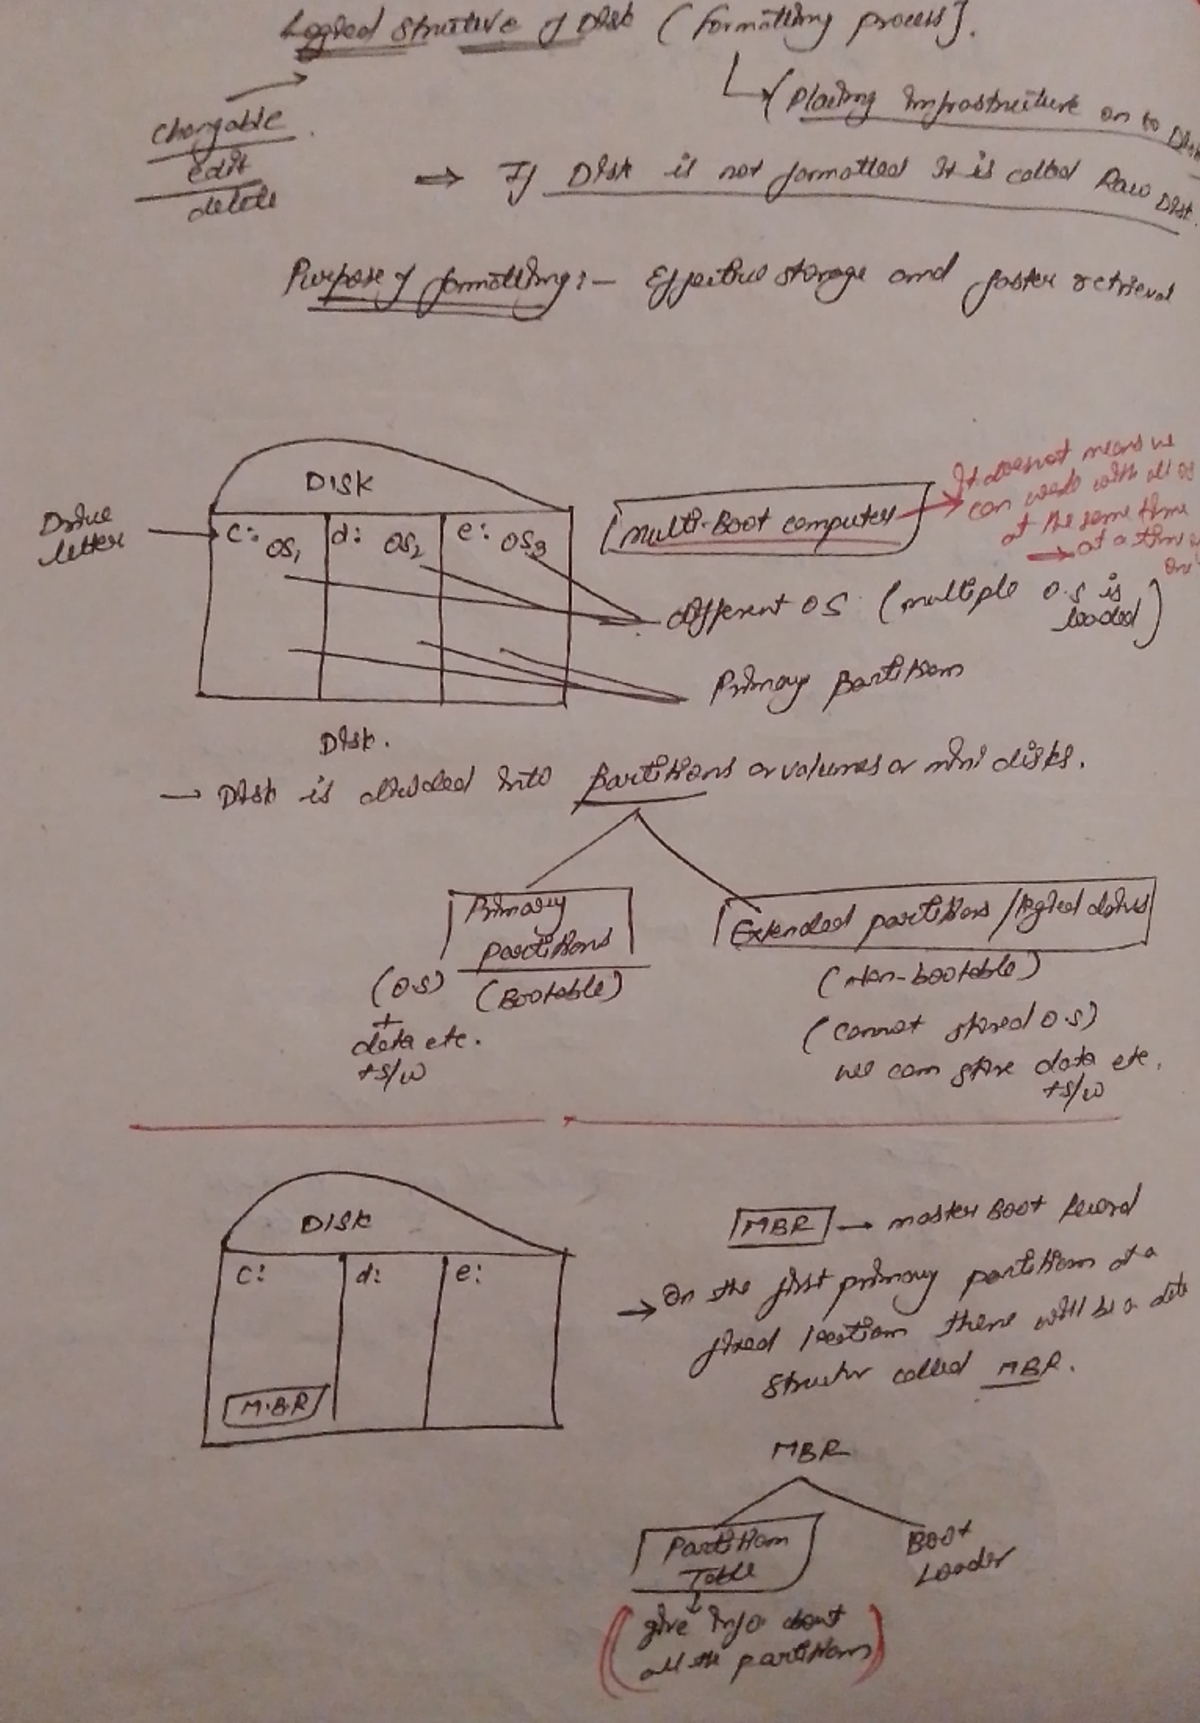 Logical structure of Disk (formatting process).
(Placing infrastructure on to Disk
changable
edit
delete
⇒ If Disk is not formatted It is called Raw Disk.
Purpose of formatting:- Effective storage and faster retrieval
DISK
Drive
letter
c: OS1
d: OS2
e: OS3
Multi-Boot computer
It does not means we
can work with all OS
at the same time
→ at a time
one
different OS (multiple O.S is
loaded)
Primary Partition
Disk.
→ Disk is divided into partitions or volumes or mini disks.
Primary
partitions
(Bootable)
(O.S)
+
data etc.
+s/w
Extended partitions/logical drives
(Non-bootable)
(cannot stored O.S)
we can store data etc.
+s/w
DISK
c:
d:
e:
M.B.R
MBR → master Boot Record
→ On the first primary partition at a
fixed location there will be a data
structur called MBR.
MBR
Partition
Table
Boot
Loader
(give info about
all the partitions)